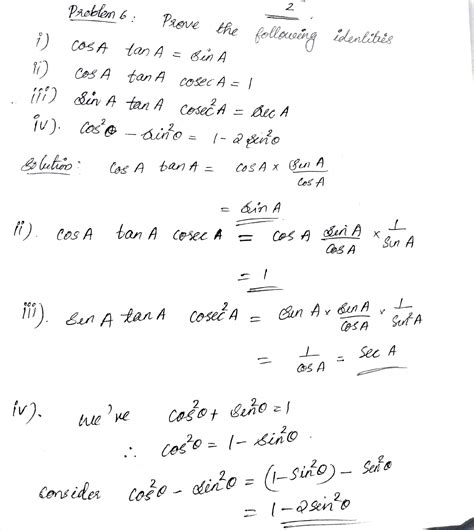 2
Problem 6: Prove the following identities
i) cosA tanA = sinA
ii) cosA tanA cosecA = 1
iii) sinA tanA cosec²A = secA
iv). cos²θ - sin²θ = 1 - 2sin²θ
Solution: cosA tanA = cosA × sinA/cosA
= sinA
ii). cosA tanA cosecA = cosA sinA/cosA × 1/sinA
= 1
iii). sinA tanA cosec²A = sinA × sinA/cosA × 1/sin²A
= 1/cosA = secA
iv). we've cos²θ + sin²θ = 1
∴ cos²θ = 1 - sin²θ.
consider cos²θ - sin²θ = (1 - sin²θ) - sin²θ
= 1 - 2sin²θ